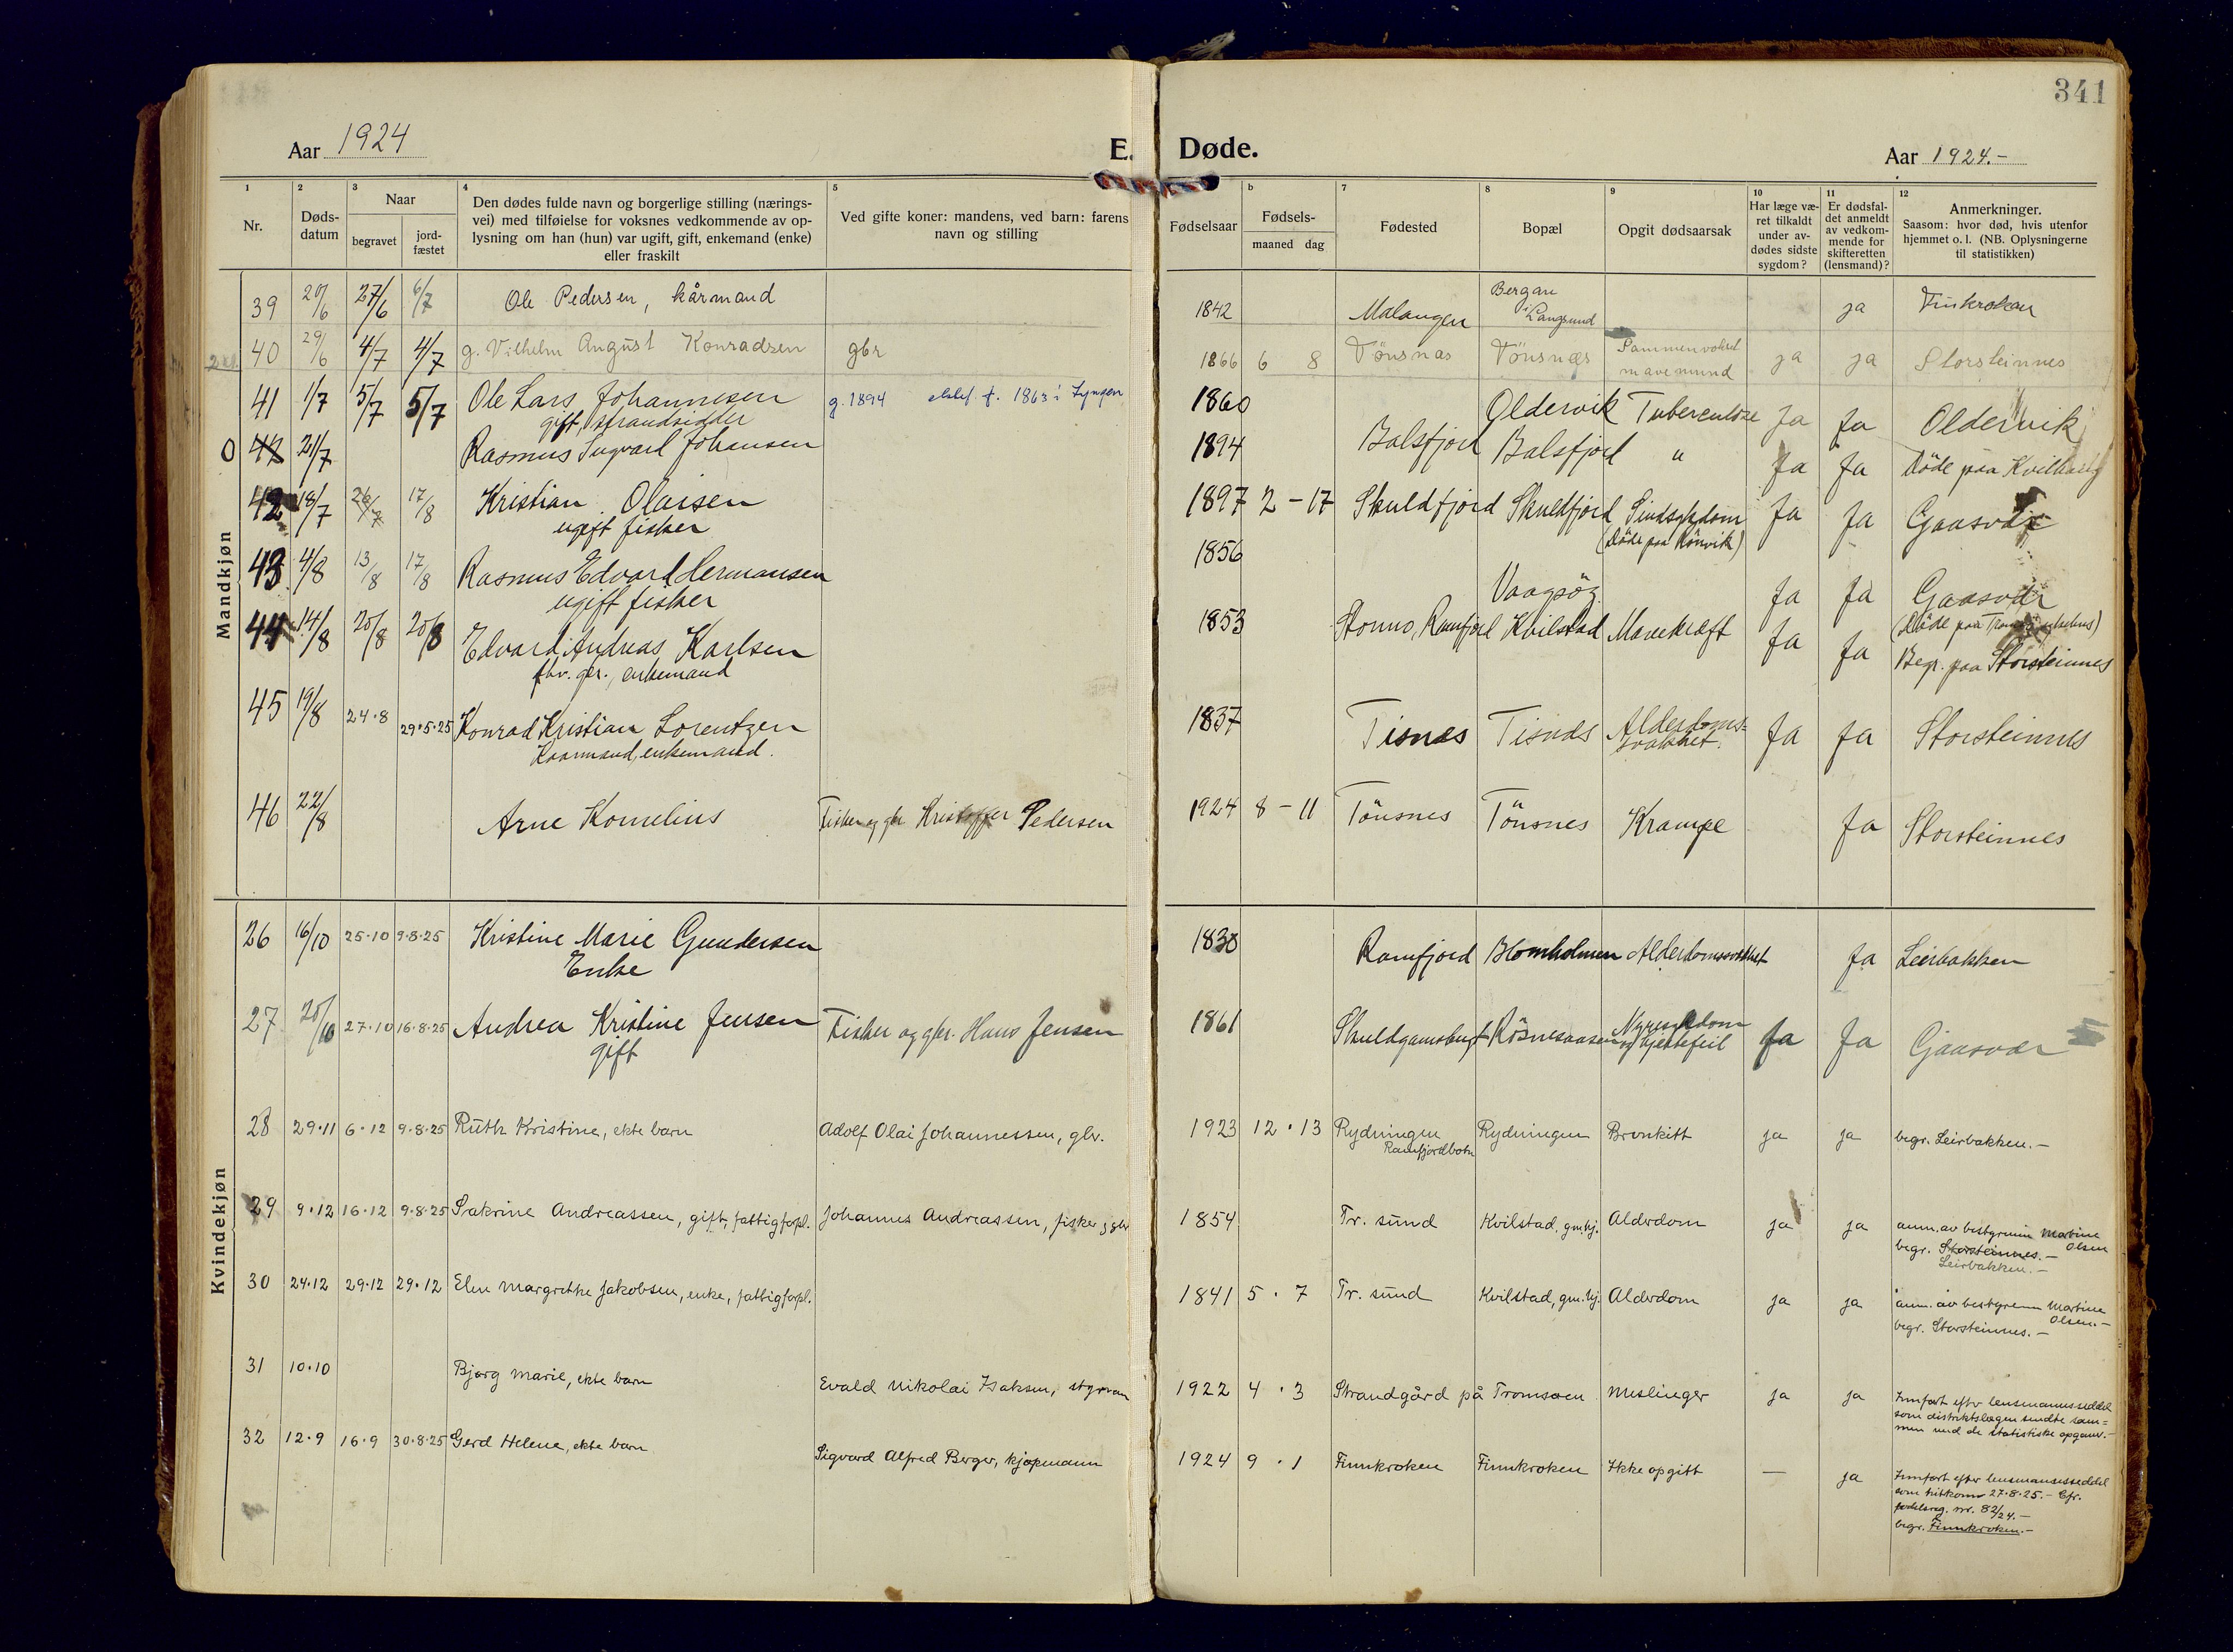 341
Aar 1924
E. Døde.
Aar 1924.-
1 Nr.
2 Døds-datum
3 Naar
begravet
jord-fæstet
4 Den dødes fulde navn og borgerlige stilling (nærings-
vei) med tilføielse for voksnes vedkommende av op-
lysning om han (hun) var ugift, gift, enkemand (enke)
eller fraskilt
5 Ved gifte koner: mandens, ved barn: farens
navn og stilling
Fødselsaar
b Fødsels-
maaned dag
7 Fødested
8 Bopæl
9 Opgit dødsaarsak
10 Har læge væ-
ret tilkaldt
under av-
dødes sidste
sygdom?
11 Er dødsfal-
det anmeldt
av vedkom-
mende for
skifteretten
(lensmand)?
12 Anmerkninger.
Saasom: hvor død, hvis utenfor
hjemmet o. l. (NB. Oplysningerne
til statistikken)
Mandkjøn
39 20/6 27/6 6/7 Ole Pedersen, kårmand 1842 Malangen Bergan i Langsund ja Finkroken
40 29/6 4/7 4/7 g. Vilhelm August Konradsen gbr 1866 6 8 Tönsnas Tönsnæs Sammenvokset mavemund ja ja Storsteinnes
41 1/7 5/7 5/7 Ole Lars Johannesen g. 1894 f. 1863 i Lyngen 1860 Oldervik Tuberculose Ja Ja Oldervik
gift, strandsidder
0 42 21/7 Rasmus Sugvard Johansen 1894 Balsfjord Balsfjord " Ja Ja Döde paa
42 18/7 26/7 17/8 Kristian Olaisen 1897 2 - 17 Skuldfjord Skuldfjord Sindsygdom Ja Ja Gaasvær
ugift fisker (Döde paa Rönvik)
43 4/8 13/8 17/8 Rasmus Edvard Hermansen 1856 Vaagsög Ja Ja Gaasvær
ugift fisker
44 14/8 20/8 20/8 Edvard Andreas Karlsen 1853 Stonno, Ramfjord Kvilstad Mavekræft Ja Ja Begr. paa Storsteinnes
fhv. gbr., enkemand
45 19/8 24.8 29.5.25 Konrad Kristian Lorentzen 1837 Tisnæs Tisnæs Alderdoms-svakhet. Ja Ja Storsteinnes
Kaarmand, enkemand.
46 22/8 Arne Kornelius Fisker og gbr Kristoffer Pedersen 1924 8 - 11 Tönsnes Tönsnes Krampe Ja Storsteinnes
Kvindekjøn
26 16/10 25.10 9.8.25 Kristine Marie Gundersen 1830 Ramfjord Blomholmen Alderdomssvakhet Ja Leirbakken
Enke
27 20/10 27.10 16.8.25 Andrea Kristine Jensen Fisker og gbr. Hans Jensen 1861 Skuldgamsbugt Rösnesaasen Nyresygdom og hjertefeil Ja Ja Gaasvær
gift
28 29.11 6.12 9.8.25 Ruth Kristine, ekte barn Adolf Olai Johannessen, gbr. 1923 12 . 13 Rydningen Ramfjordbotn Rydningen Bronkitt ja ja begr. Leirbakken.-
29 9.12 16.12 9.8.25 Sakrine Andreassen, gift, fattigforpl. Johannes Andreassen, fisker, gbr 1854 Tr. sund Kvilstad, gm.hj. Alderdom ja ja anm. av bestyrerinn Martine Olsen
begr. Storsteinnes.-
Leirbakken.-
30 24.12 29.12 29.12 Elen Margrethe Jakobsen, enke, fattigforpl. 1841 5 . 7 Tr. sund Kvilstad, gm.hj. Alderdom ja ja anm. av bestyrerinn Martine Olsen.-
begr. Storsteinnes.-
31 10.10 Bjørg Marie, ekte barn Evald Nikolai Isaksen, styrman 1922 4 . 3 Strandgård på Tromsøen Meslinger ja ja Innført efter lensmannsseddel
som distriktslægen sendte sam-
men med de statistiske opgaver.-
32 12.9 16.9 30.8.25 Gerd Helene, ekte barn Sigvard Alfred Berger, kjøpmann 1924 9 . 1 Finnkroken Finnkroken Ikke opgitt - ja Innført efter lensmannsseddel
som hitkom 27.8.25.- Cfr.
fødselsreg. nr. 82/24.-
begr. Finnkroken.-